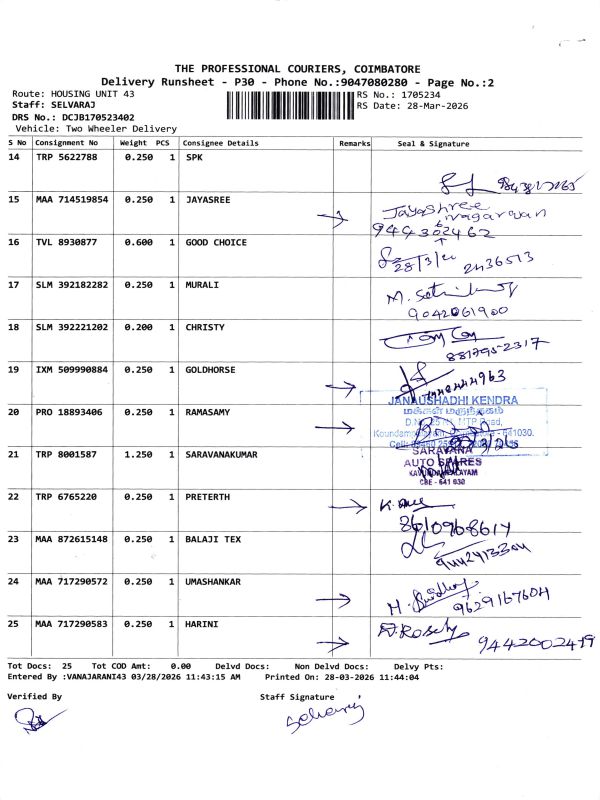 THE PROFESSIONAL COURIERS, COIMBATORE
Delivery Runsheet - P30 - Phone No.:9047080280 - Page No.:2
Route: HOUSING UNIT 43
RS No.: 1705234
Staff: SELVARAJ
RS Date: 28-Mar-2026
DRS No.: DCJB170523402
Vehicle: Two Wheeler Delivery
S No Consignment No Weight PCS Consignee Details Remarks Seal & Signature
14 TRP 5622788 0.250 1 SPK
15 MAA 714519854 0.250 1 JAYASREE Jayashree
nagarajan
16 TVL 8930877 0.600 1 GOOD CHOICE
2436513
17 SLM 392182282 0.250 1 MURALI
9042061900
18 SLM 392221202 0.200 1 CHRISTY
881795-2317
19 IXM 509990884 0.250 1 GOLDHORSE
JANAUSHADHI KENDRA
மக்கள் மருந்தகம்
20 PRO 18893406 0.250 1 RAMASAMY
21 TRP 8001587 1.250 1 SARAVANAKUMAR SARAVANA
AUTO SPARES
KAVUNDAMPALAYAM
CBE - 641 030
22 TRP 6765220 0.250 1 PRETERTH
8610968614
23 MAA 872615148 0.250 1 BALAJI TEX
9442413304
24 MAA 717290572 0.250 1 UMASHANKAR
9629167604
25 MAA 717290583 0.250 1 HARINI
9442002479
Tot Docs: 25 Tot COD Amt: 0.00 Delvd Docs: Non Delvd Docs: Delvy Pts:
Entered By :VANAJARANI43 03/28/2026 11:43:15 AM Printed On: 28-03-2026 11:44:04
Verified By Staff Signature